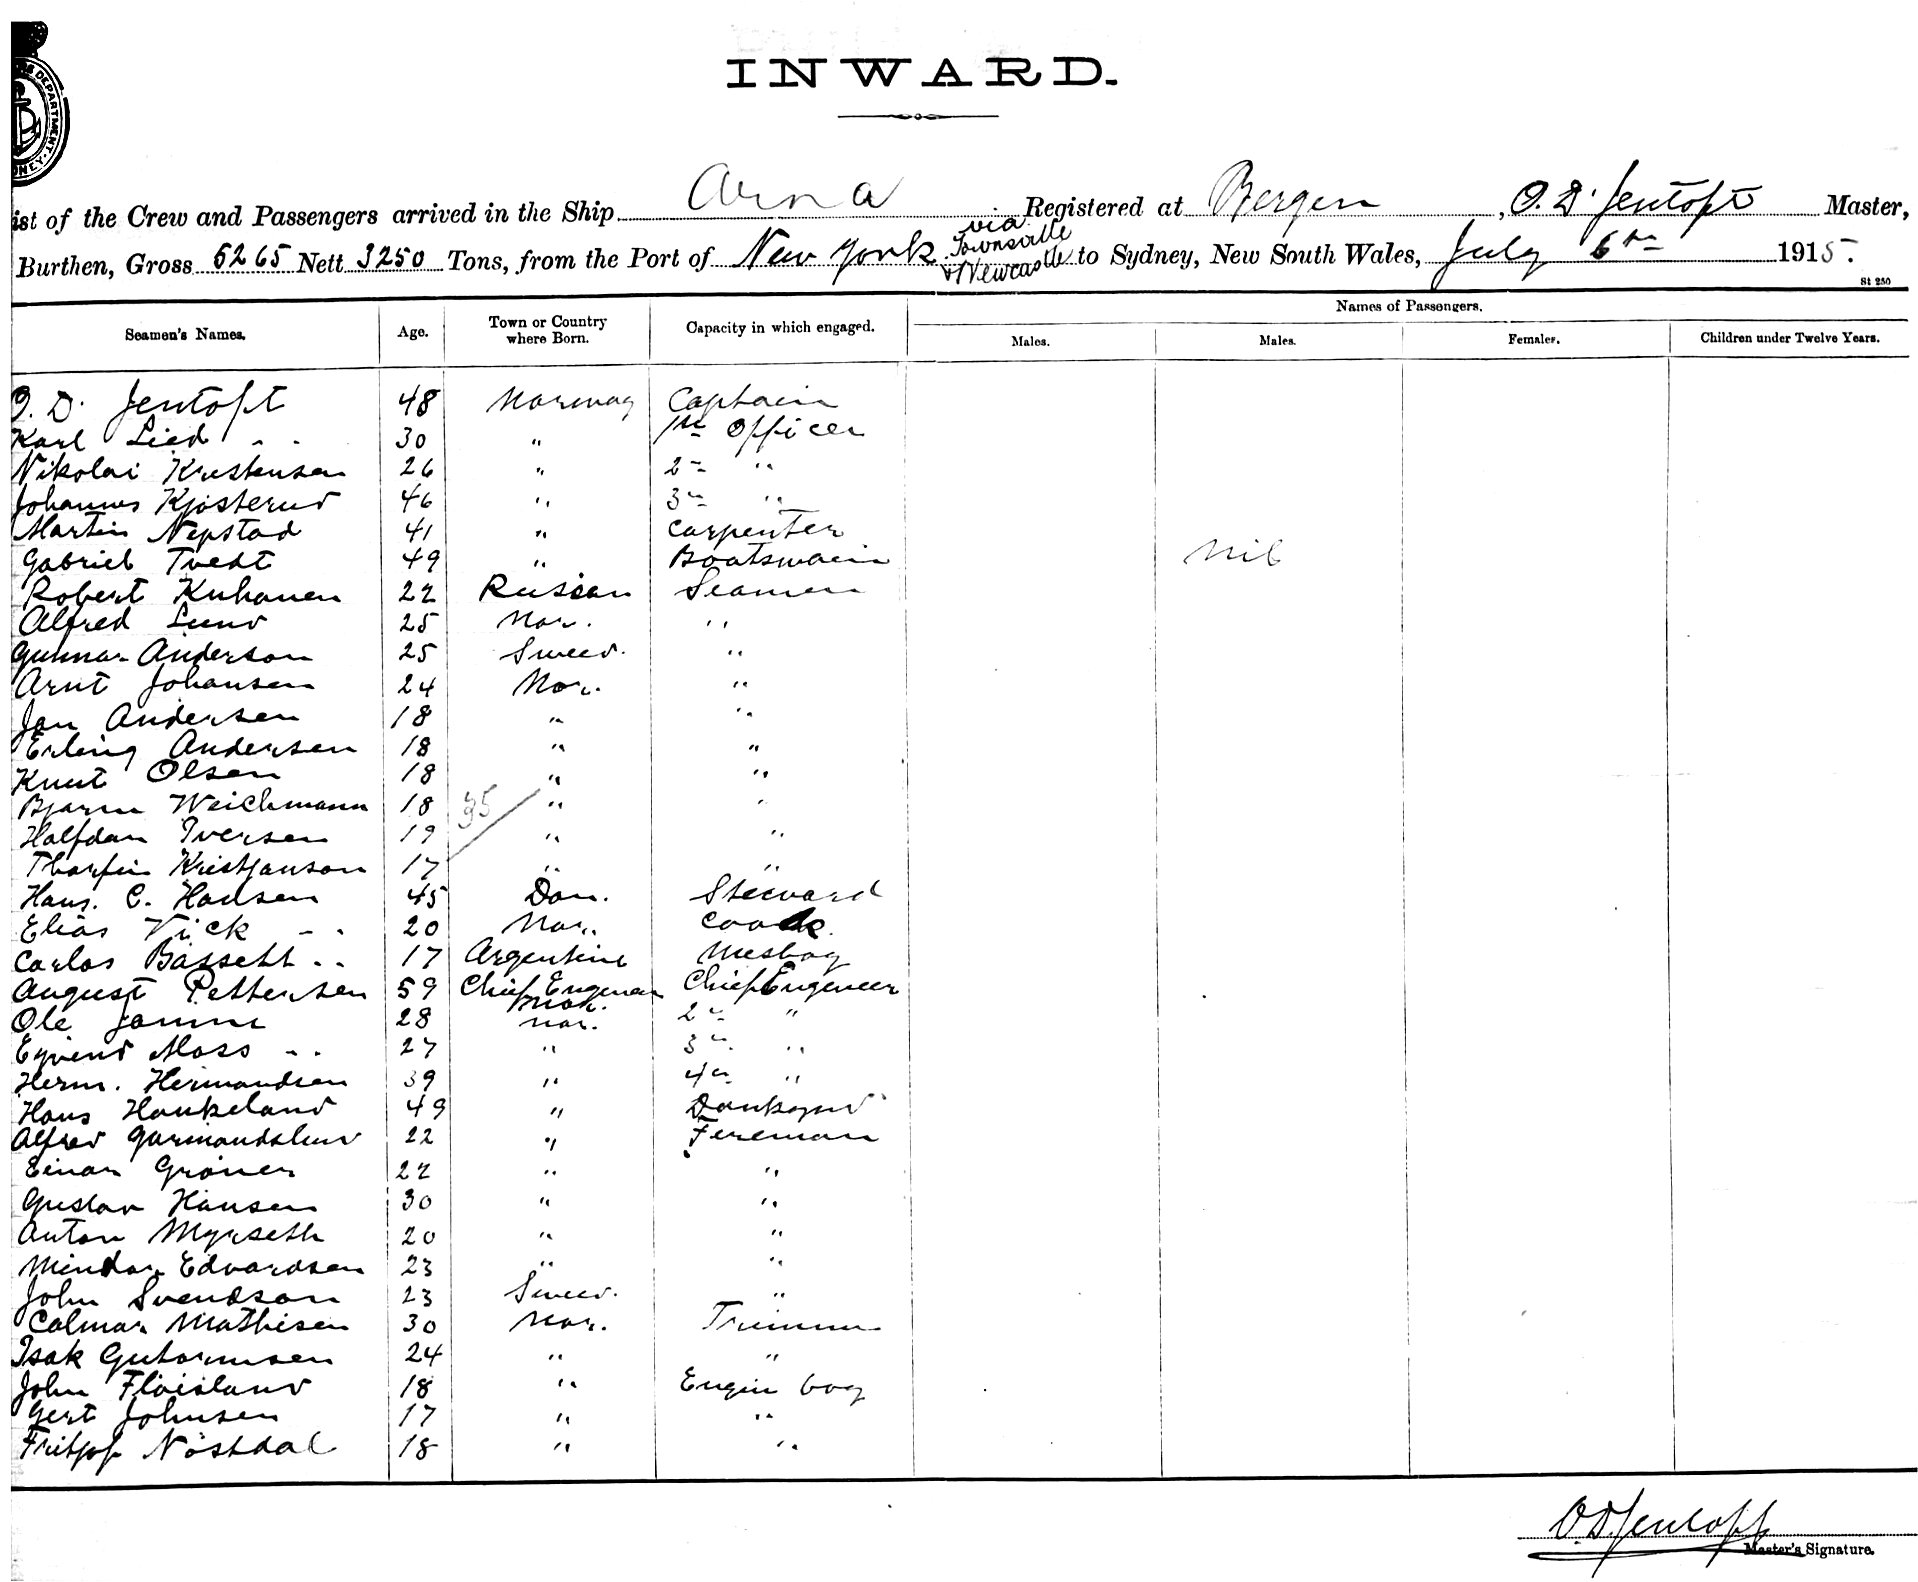 INWARD.
ist of the Crew and Passengers arrived in the Ship Arna Registered at Bergen, O. D. Jentoft Master,
Burthen, Gross 5265 Nett 3250 Tons, from the Port of New York via Townsville & Newcastle to Sydney, New South Wales, July 6th 1915.
St 250
Seamen's Names. Age. Town or Country where Born. Capacity in which engaged. Names of Passengers.
Males. Males. Females. Children under Twelve Years.
O. D. Jentoft 48 Norway Captain
Karl Lied - - 30 " 1st Officer
Nikolai Kristensen 26 " 2n "
Johannes Kjøsterud 46 " 3n "
Martin Nepstad 41 " Carpenter
Gabriel Tvedt 49 " Boatswain
Nil
Robert Kuhanen 22 Russian Seamen
Alfred Lund 25 Nor. "
Gunnar Anderson 25 Sweed. "
Arnt Johansen 24 Nor. "
Jan Andersen 18 " "
Erling Andersen 18 " "
Knut Olsen 18 " "
Bjarne Weichmann 18 " "
35
Halfdan Iversen 19 " "
Thorfin Kristjanson 17 " "
Hans. C. Hansen 45 Dan. Steward
Elias Vick - - 20 Nor. Coock.
Carlos Bassett - - 17 Argentine Mesboy
August Pettersen 59 Chief Engeneer Nor. Chief Engeneer
Ole 28 Nor. 2n "
Eyvind Moss - - 27 " 3n "
Herm. Hermandsen 39 " 4n "
Hans Haukeland 49 " Donkeym
Alfred 22 " Fireman
Einar Grøner 22 " "
Gustav Hansen 30 " "
Anton Myrseth 20 " "
Mindor Edvardsen 23 " "
John Svendson 23 Sweed. "
Calmar Mathisen 30 Nor. Trimmer
Isak Gutormsen 24 " "
John Fløisland 18 " Engin boy
Gert Johnsen 17 " "
Fritjof Nøstdal 18 " "
O. D. Jentoft
Master's Signature.